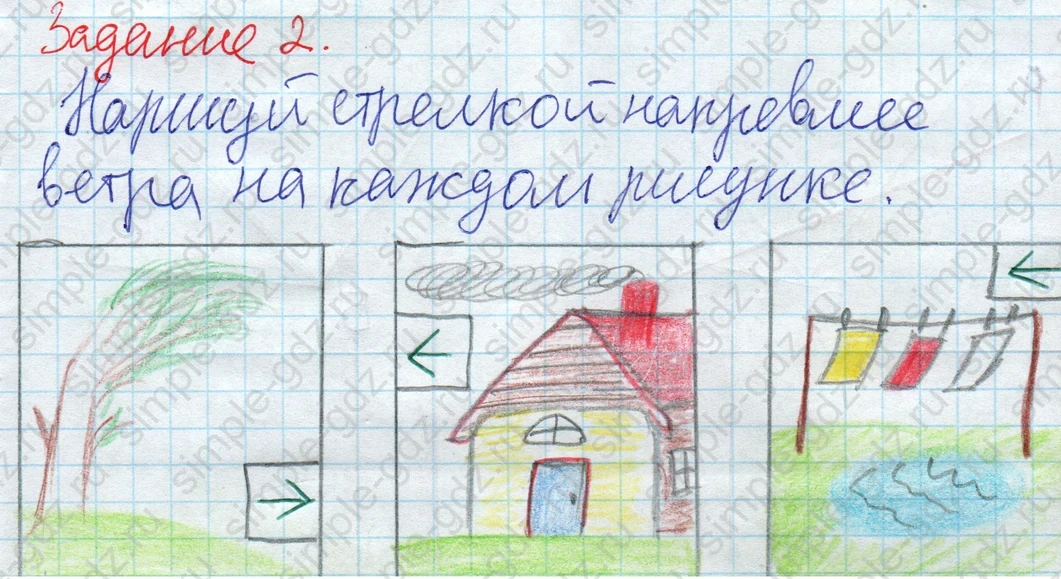 Задание 2.
Нарисуй стрелкой направление
ветра на каждом рисунке.
simple-gdz.ru